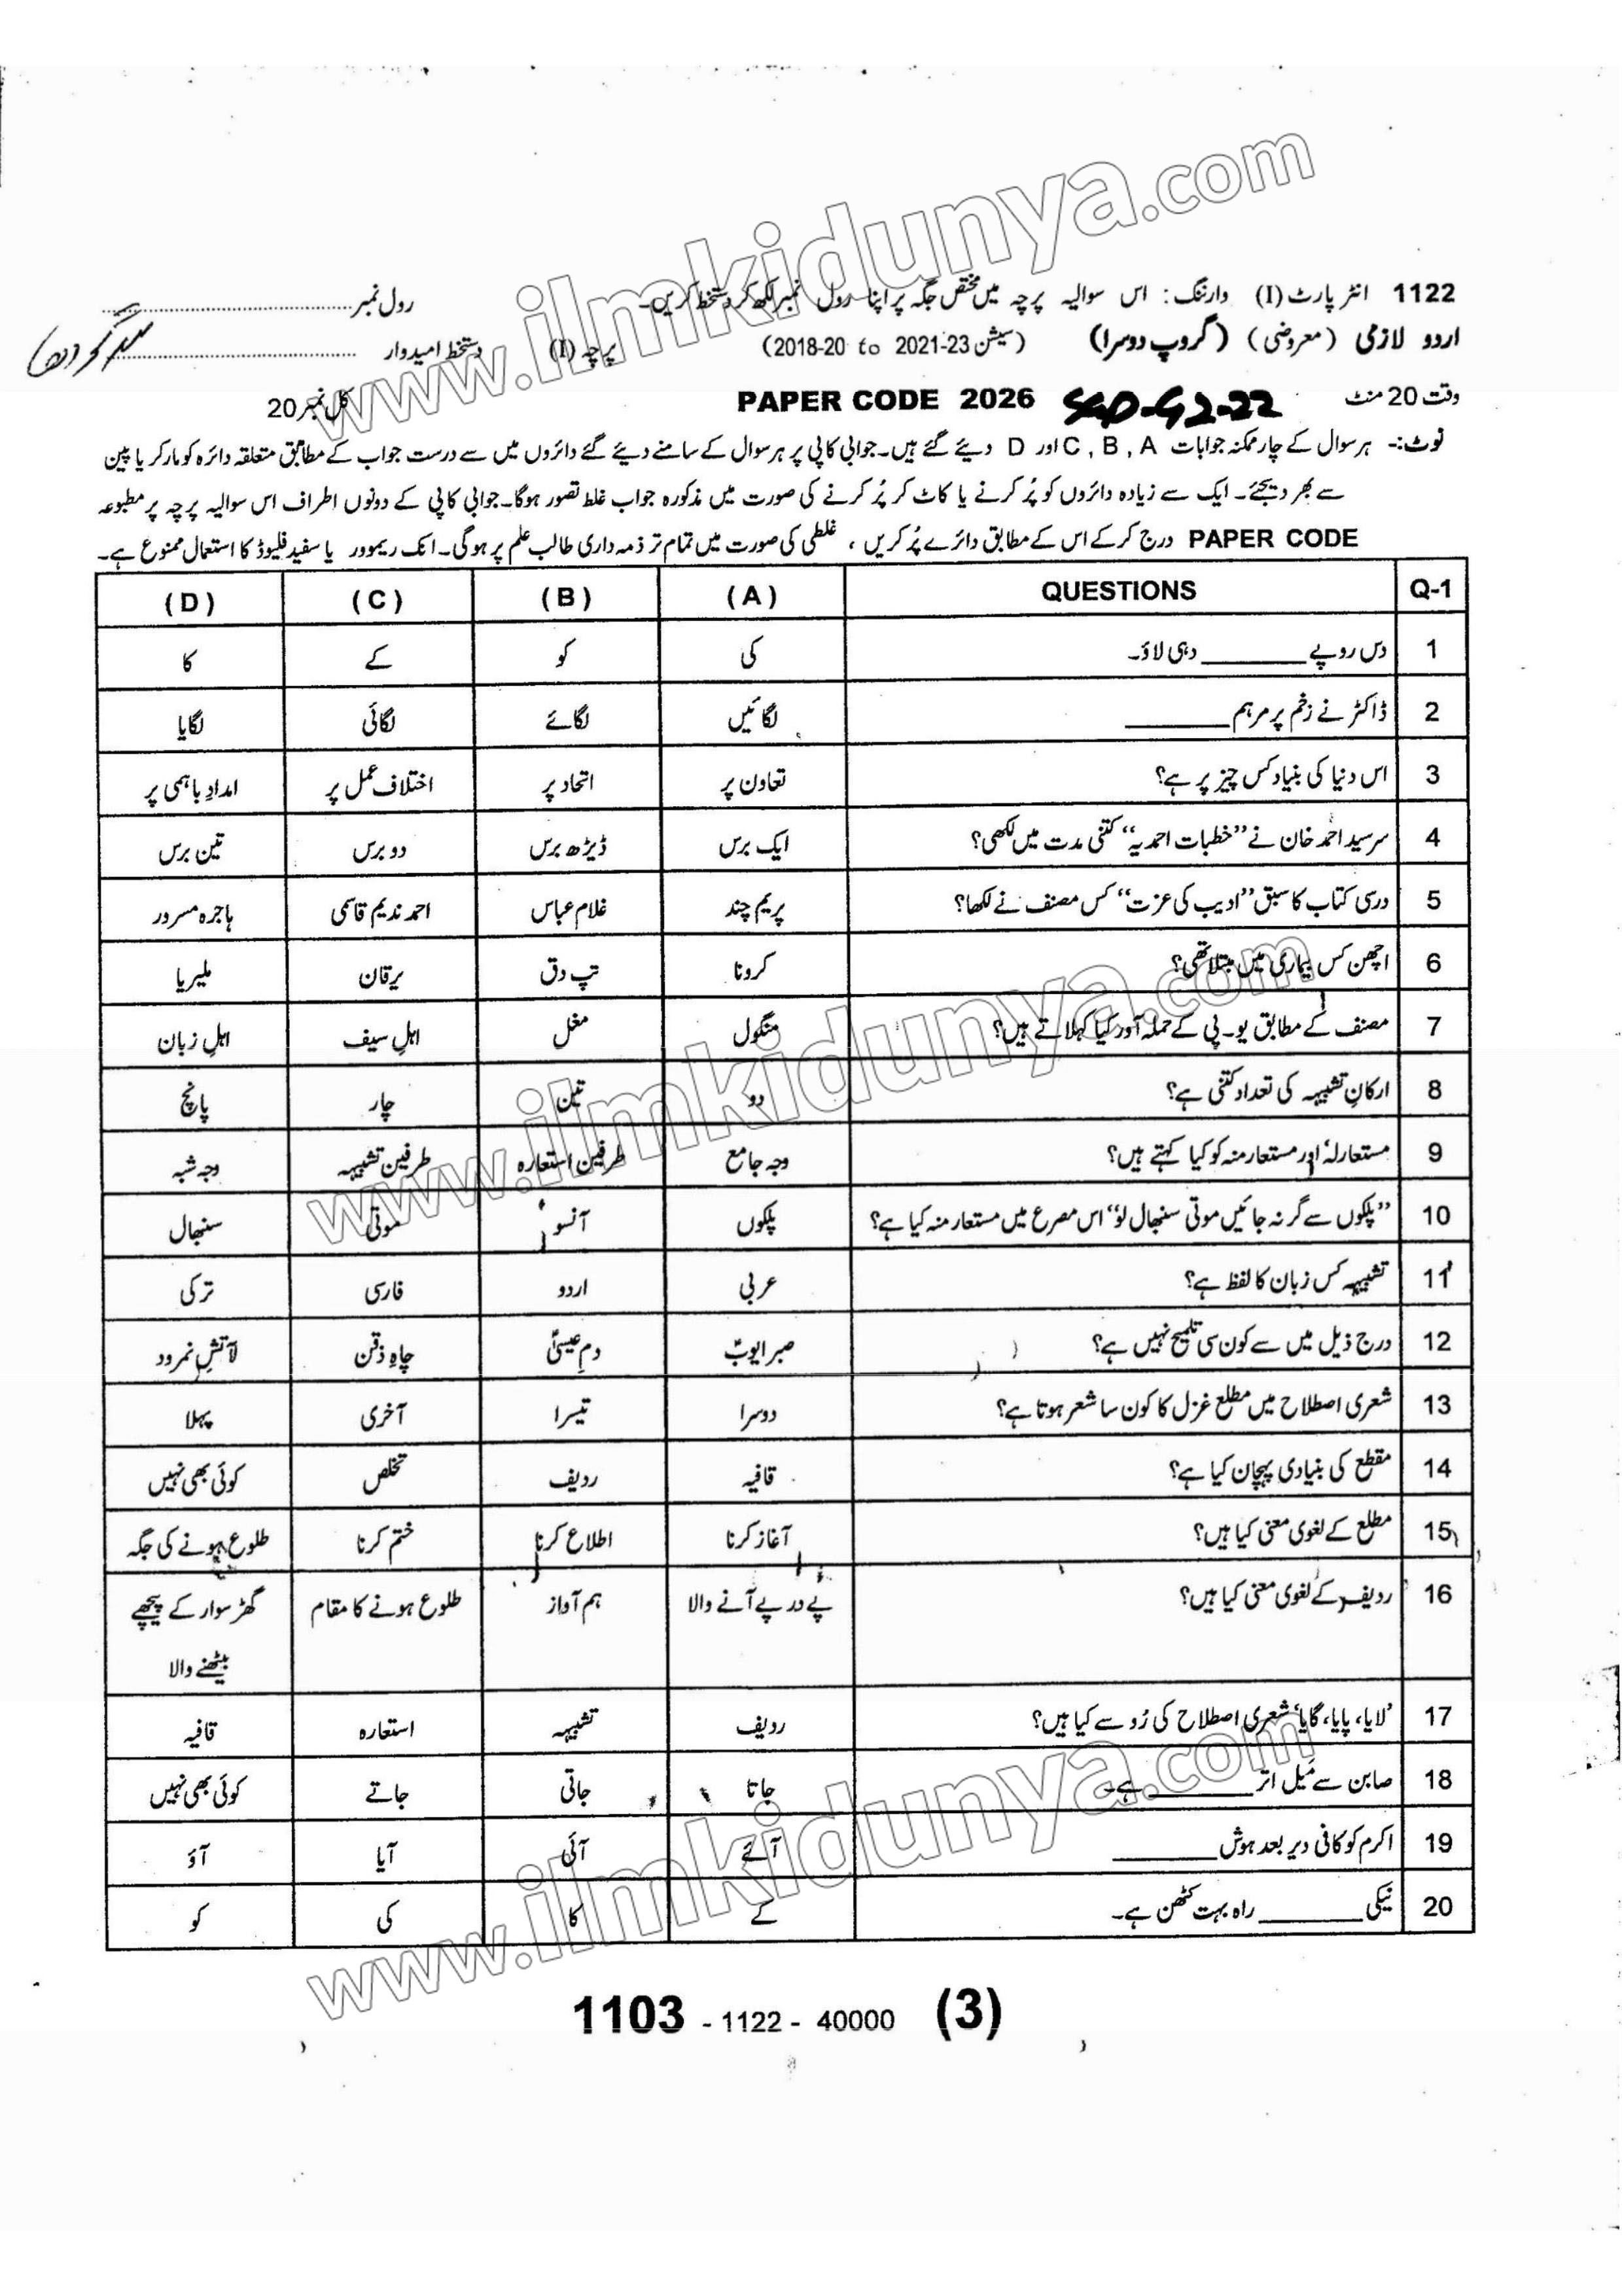 www.ilmkidunya.com
1122 انٹر پارٹ (I) وارننگ: اس سوالیہ پرچہ میں مختص جگہ پر اپنا رول نمبر لکھ کر دستخط کریں۔ رول نمبر
اردو لازمی (معروضی) (گروپ دوسرا) (سیشن 2018-20 to 2021-23) پرچہ (I) دستخط امیدوار سرگودھا
وقت 20 منٹ SGD-G2-22 PAPER CODE 2026 کل نمبر 20
نوٹ:- ہر سوال کے چار ممکنہ جوابات A , B , C اور D دیئے گئے ہیں۔ جوابی کاپی پر ہر سوال کے سامنے دیئے گئے دائروں میں سے درست جواب کے مطابق متعلقہ دائرہ کو مارکر یا پین
سے بھر دیجئے۔ ایک سے زیادہ دائروں کو پُر کرنے یا کاٹ کر پُر کرنے کی صورت میں مذکورہ جواب غلط تصور ہوگا۔ جوابی کاپی کے دونوں اطراف اس سوالیہ پرچہ پر مطبوعہ
PAPER CODE درج کرکے اس کے مطابق دائرے پُر کریں ، غلطی کی صورت میں تمام تر ذمہ داری طالب علم پر ہوگی۔ انک ریموور یا سفید فلیوڈ کا استعمال ممنوع ہے۔
Q-1 QUESTIONS (A) (B) (C) (D)
1 دس روپے ________ دہی لاؤ۔ کی کو کے کا
2 ڈاکٹر نے زخم پر مرہم ________ لگائیں لگائے لگائی لگایا
3 اس دنیا کی بنیاد کس چیز پر ہے؟ تعاون پر اتحاد پر اختلاف عمل پر امدادِ باہمی پر
4 سرسید احمد خان نے ”خطبات احمدیہ“ کتنی مدت میں لکھی؟ ایک برس ڈیڑھ برس دو برس تین برس
5 درسی کتاب کا سبق ”ادیب کی عزت“ کس مصنف نے لکھا؟ پریم چند غلام عباس احمد ندیم قاسمی ہاجرہ مسرور
6 اچھن کس بیماری میں مبتلا تھی؟ کرونا تپ دق یرقان ملیریا
7 مصنف کے مطابق یو۔پی کے حملہ آور کیا کہلاتے ہیں؟ منگول مغل اہلِ سیف اہلِ زبان
8 ارکانِ تشبیہہ کی تعداد کتنی ہے؟ دو تین چار پانچ
9 مستعارلہٗ اور مستعارمنہ کو کیا کہتے ہیں؟ وجہ جامع طرفین استعارہ طرفین تشبیہہ وجہ شبہ
10 ”پلکوں سے گر نہ جائیں موتی سنبھال لو“ اس مصرع میں مستعارمنہ کیا ہے؟ پلکوں آنسو موتی سنبھال
11 تشبیہہ کس زبان کا لفظ ہے؟ عربی اردو فارسی ترکی
12 درج ذیل میں سے کون سی تلمیح نہیں ہے؟ صبر ایوبؑ دمِ عیسیٰؑ چاہِ ذقن آتشِ نمرود
13 شعری اصطلاح میں مطلع غزل کا کون سا شعر ہوتا ہے؟ دوسرا تیسرا آخری پہلا
14 مقطع کی بنیادی پہچان کیا ہے؟ قافیہ ردیف تخلص کوئی بھی نہیں
15 مطلع کے لغوی معنی کیا ہیں؟ آغاز کرنا اطلاع کرنا ختم کرنا طلوع ہونے کی جگہ
16 ردیف کے لغوی معنی کیا ہیں؟ پے در پے آنے والا ہم آواز طلوع ہونے کا مقام گھڑ سوار کے پیچھے
بیٹھنے والا
17 ’لایا، پایا، گایا‘ شعری اصطلاح کی رُو سے کیا ہیں؟ ردیف تشبیہہ استعارہ قافیہ
18 صابن سے مَیل اتر ________ ہے۔ جاتا جاتی جاتے کوئی بھی نہیں
19 اکرم کو کافی دیر بعد ہوش ________ آئے آئی آیا آؤ
20 نیکی ________ راہ بہت کٹھن ہے۔ کے کا کی کو
www.ilmkidunya.com
www.ilmkidunya.com
1103 - 1122 - 40000 (3)